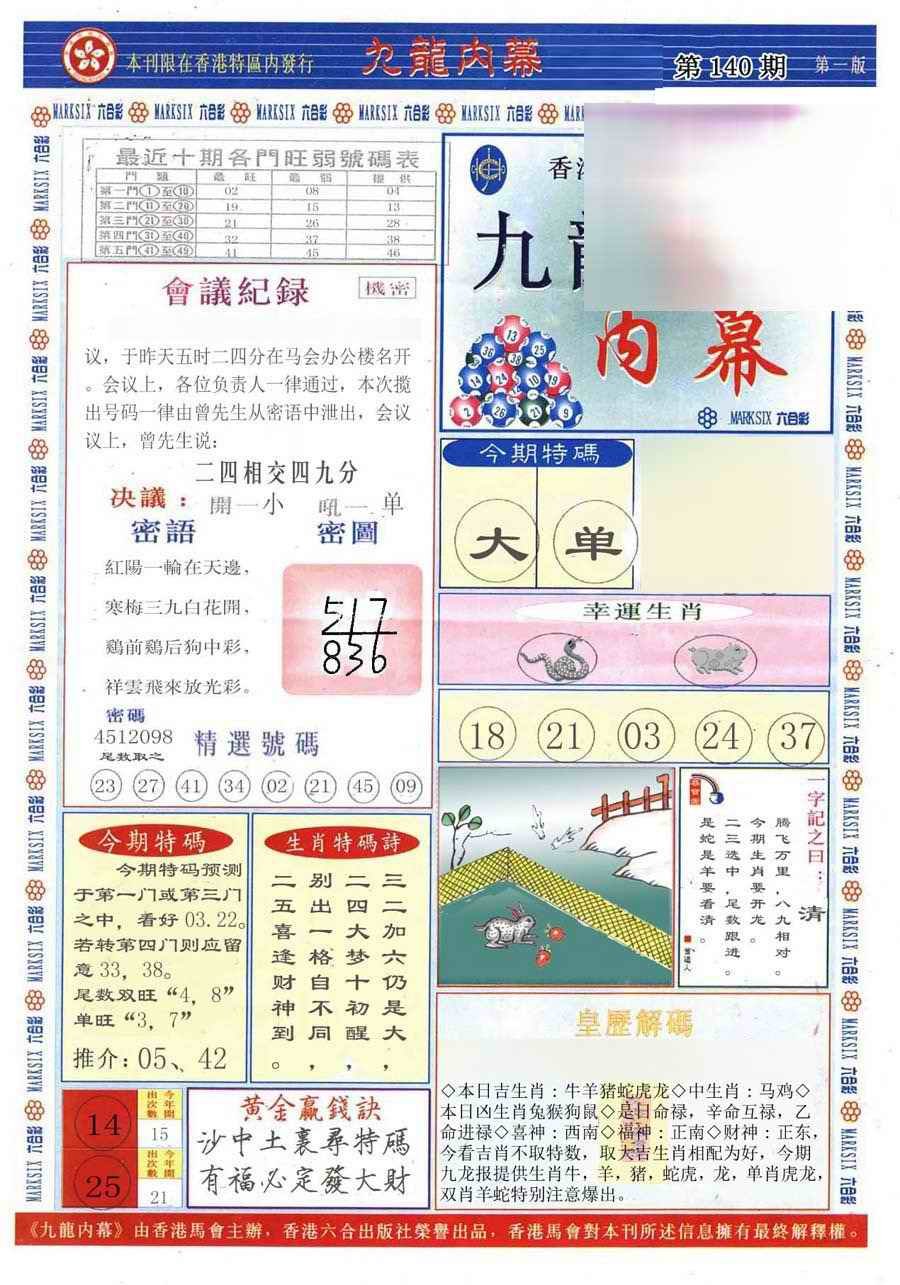 本刊限在香港特區内發行
九龍内幕
第 140 期
第一版
MARKSIX 六合彩 MARKSIX 六合彩 MARKSIX 六合彩 MARKSIX 六合彩 MARKSIX 六合彩
最近十期各門旺弱號碼表
門 類 最 旺 最 弱 提 供
第一門①至⑩ 02 08 04
第二門⑪至⑳ 19 15 13
第三門㉑至㉚ 21 26 28
第四門㉛至㊵ 32 37 38
第五門㊶至㊾ 41 45 46
會議紀録
機密
议，于昨天五时二四分在马会办公楼名开
。会议上，各位负责人一律通过，本次揽
出号码一律由曾先生从密语中泄出，会议
议上，曾先生说：
二四相交四九分
决議：開一小 吼一单
密語
密圖
紅陽一輪在天邊，
寒梅三九白花開，
鷄前鷄后狗中彩，
祥雲飛來放光彩。
517
836
密碼
4512098
尾数取之
精選號碼
23 27 41 34 02 21 45 09
香港
九龍
内幕
13
36 38 25
14 24 10 19
2 26 21 9
MARKSIX 六合彩
今期特碼
大 单
幸運生肖
18 21 03 24 37
一字記之曰：
清
腾飞万里，八九相对。
今期生肖要开龙。
二三选中，尾数跟进。
是蛇是羊要看清。
今期特碼
今期特码预测
于第一门或第三门
之中，看好 03.22。
若转第四门则应留
意 33，38。
尾数双旺“4，8”
单旺“3，7”
推介：05、42
生肖特碼詩
三二加六仍是大，
二四大梦十初醒，
别出一格自不同，
二五喜逢财神到。
14
今年開
出次數
15
25
今年開
出次數
21
黄金贏錢訣
沙中土裏尋特碼
有福必定發大財
皇歷解碼
◇本日吉生肖：牛羊猪蛇虎龙◇中生肖：马鸡◇
本日凶生肖兔猴狗鼠◇是日命禄，辛命互禄，乙
命进禄◇喜神：西南◇福神：正南◇财神：正东，
今看吉肖不取特数，取大吉生肖相配为好，今期
九龙报提供生肖牛，羊，猪，蛇虎，龙，单肖虎龙，
双肖羊蛇特别注意爆出。
《九龍内幕》由香港馬會主辦，香港六合出版社榮譽出品，香港馬會對本刊所述信息擁有最終解釋權。